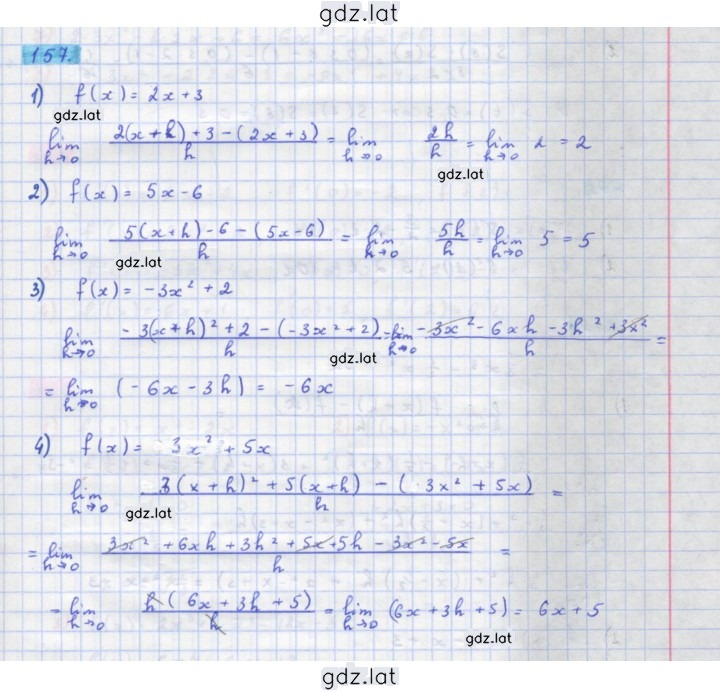 gdz.lat
157.
1) f(x) = 2x + 3
gdz.lat
lim h→0 (2(x + h) + 3 − (2x + 3))/h = lim h→0 2h/h = lim h→0 2 = 2
gdz.lat
2) f(x) = 5x − 6
lim h→0 (5(x + h) − 6 − (5x − 6))/h = lim h→0 5h/h = lim h→0 5 = 5
gdz.lat
3) f(x) = −3x² + 2
lim h→0 (−3(x + h)² + 2 − (−3x² + 2))/h = lim h→0 (−3x² − 6xh − 3h² + 3x²)/h =
gdz.lat
= lim h→0 (−6x − 3h) = −6x
4) f(x) = 3x² + 5x
lim h→0 (3(x + h)² + 5(x + h) − (3x² + 5x))/h =
gdz.lat
= lim h→0 (3x² + 6xh + 3h² + 5x + 5h − 3x² − 5x)/h =
= lim h→0 h(6x + 3h + 5)/h = lim h→0 (6x + 3h + 5) = 6x + 5
gdz.lat
gdz.lat